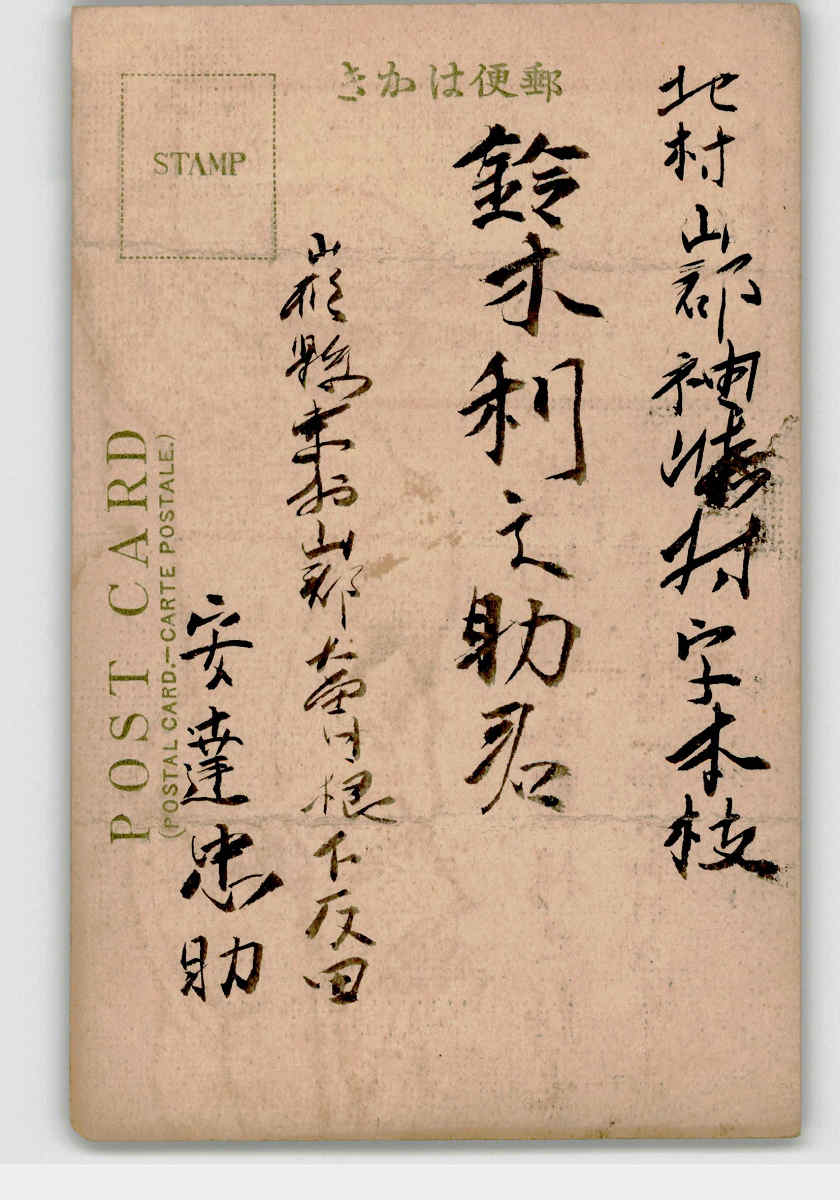 郵便はかき
北村山郡袖崎村字本枝
鈴木利文助君
山形縣東村山郡大曾根下反田
安達忠助
STAMP
POST CARD
(POSTAL CARD.—CARTE POSTALE.)